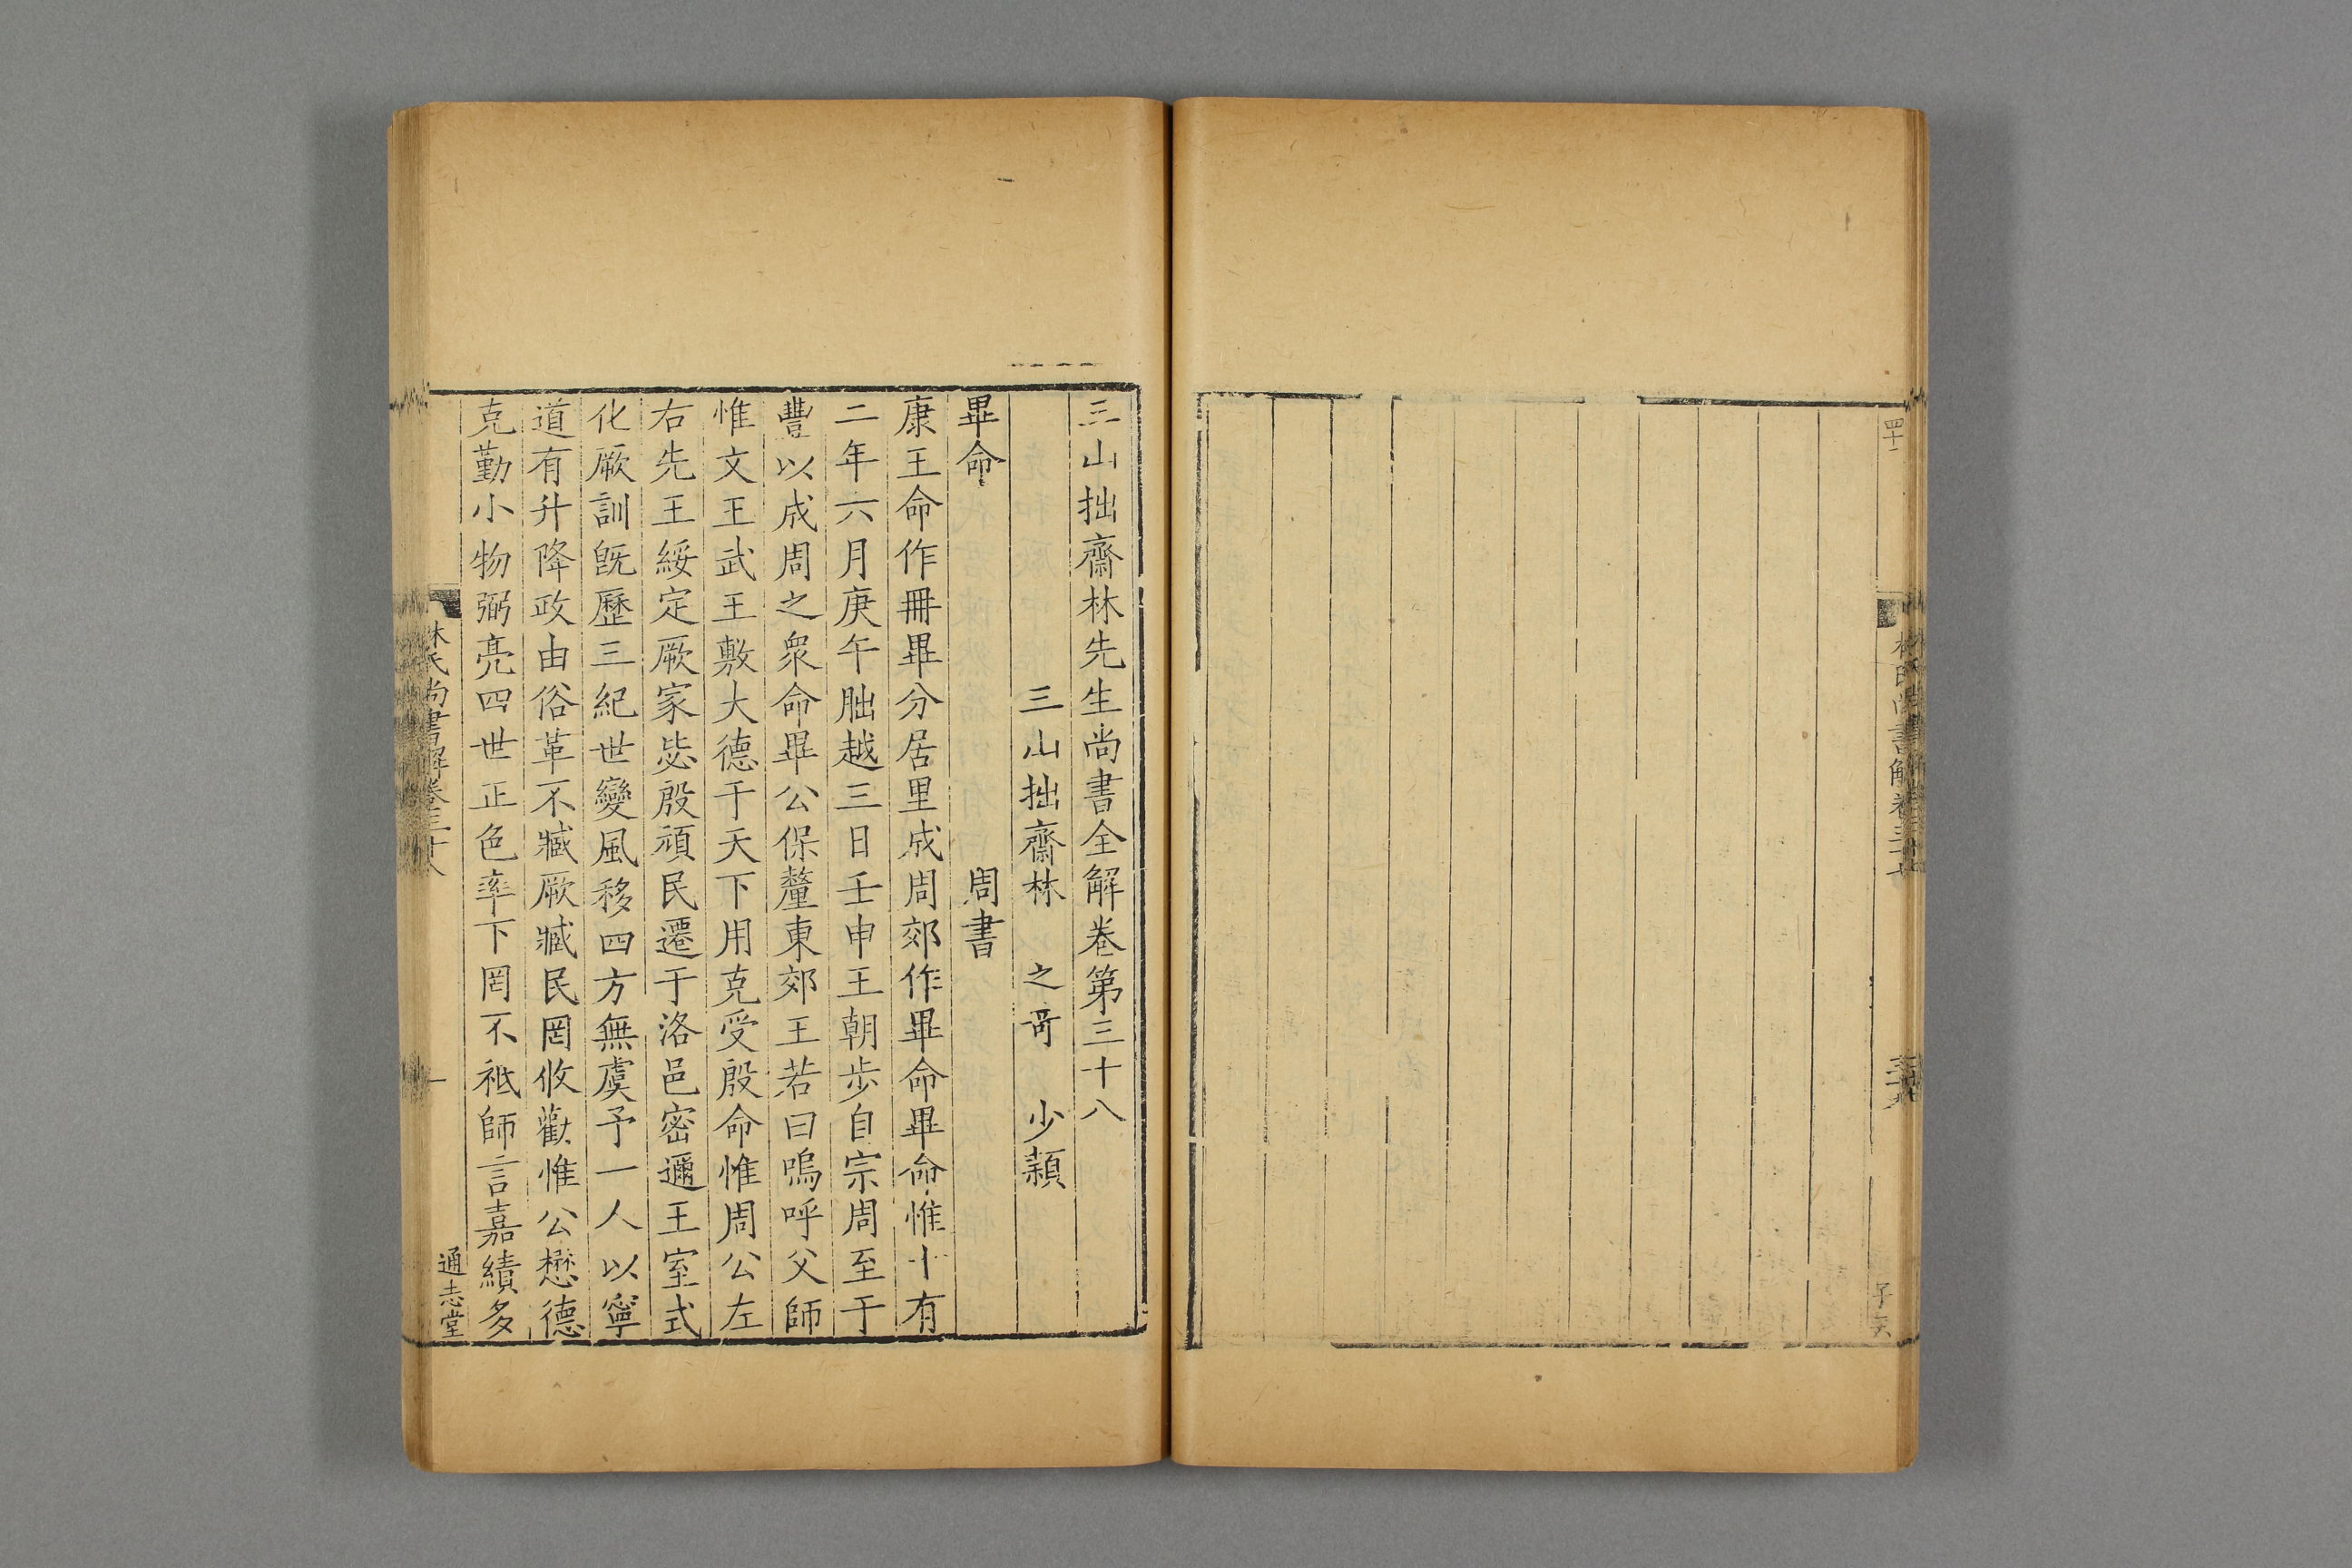 三山拙齋林先生尚書全解卷第三十八
三山拙齋林 之奇 少穎
畢命 周書
康王命作冊畢分居里成周郊作畢命畢命惟十有
二年六月庚午朏越三日壬申王朝步自宗周至于
豐以成周之衆命畢公保釐東郊王若曰嗚呼父師
惟文王武王敷大德于天下用克受殷命惟周公左
右先王綏定厥家毖殷頑民遷于洛邑密邇王室式
化厥訓旣歷三紀世變風移四方無虞予一人以寧
道有升降政由俗革不臧厥臧民罔攸勸惟公懋德
克勤小物弼亮四世正色率下罔不祗師言嘉績多
林氏尚書解卷三十八
一
通志堂